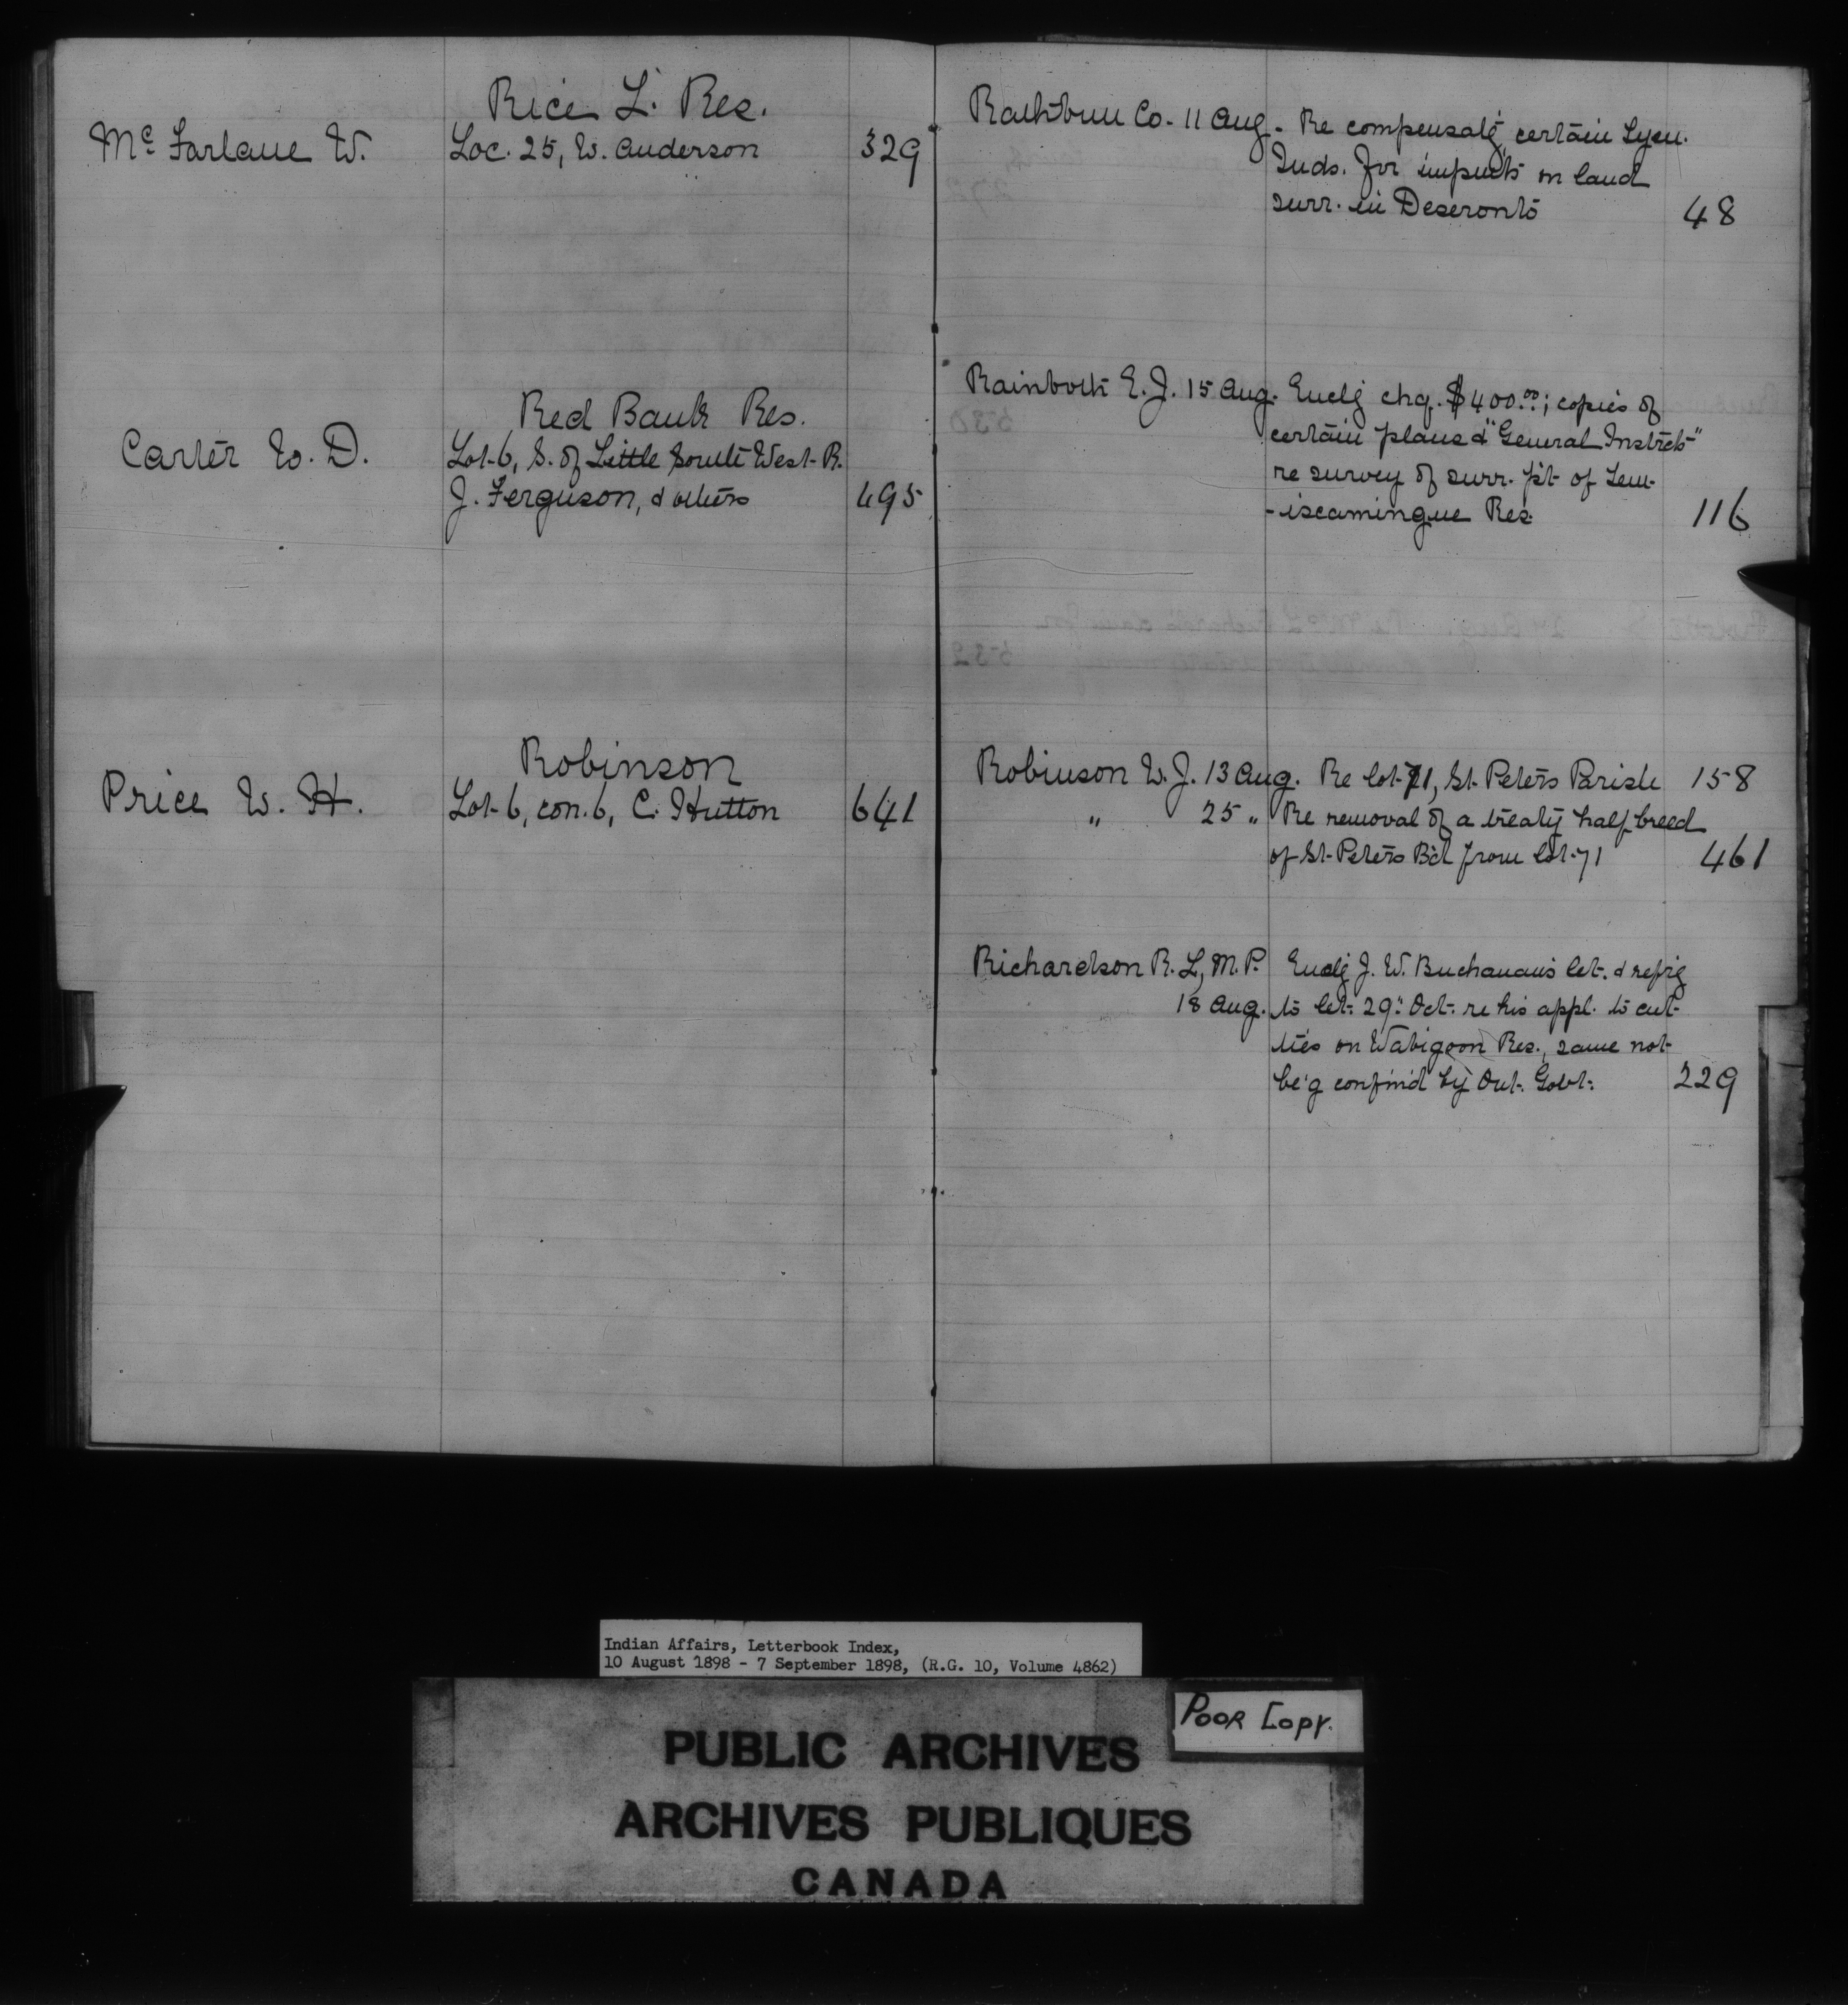 Rice L. Res.
Mc Farlane W. Loc. 25, W. Anderson 329
Red Bank Res.
Carter W. D. Lot 6, S. of Little South West R.
J. Ferguson, & others 495
Robinson
Price W. H. Lot 6, con. 6, C. Hutton 641
Rathbun Co. 11 Aug. Re compensat'g certain Tyen.
Inds. for impm'ts on land
surr. in Deseronto 48
Rainboth E. J. 15 Aug. Encl'g chq. $400.00; copies of
certain plans & "General Instrcts"
re survey of surr. p't of Tem-
-iscamingue Res. 116
Robinson W. J. 13 Aug. Re lot 71, St. Peters Parish 158
" 25 " Re removal of a treaty half breed
of St. Peters B'd from lot 71 461
Richardson R. L, M. P. Encl'g J. W. Buchanan's let. & ref'rg
18 Aug. to let. 29" Oct. re his appl. to cut
ties on Wabigoon Res., same not
be'g confirm'd by Ont. Govt. 229
Indian Affairs, Letterbook Index,
10 August 1898 - 7 September 1898, (R.G. 10, Volume 4862)
Poor Copy.
PUBLIC ARCHIVES
ARCHIVES PUBLIQUES
CANADA